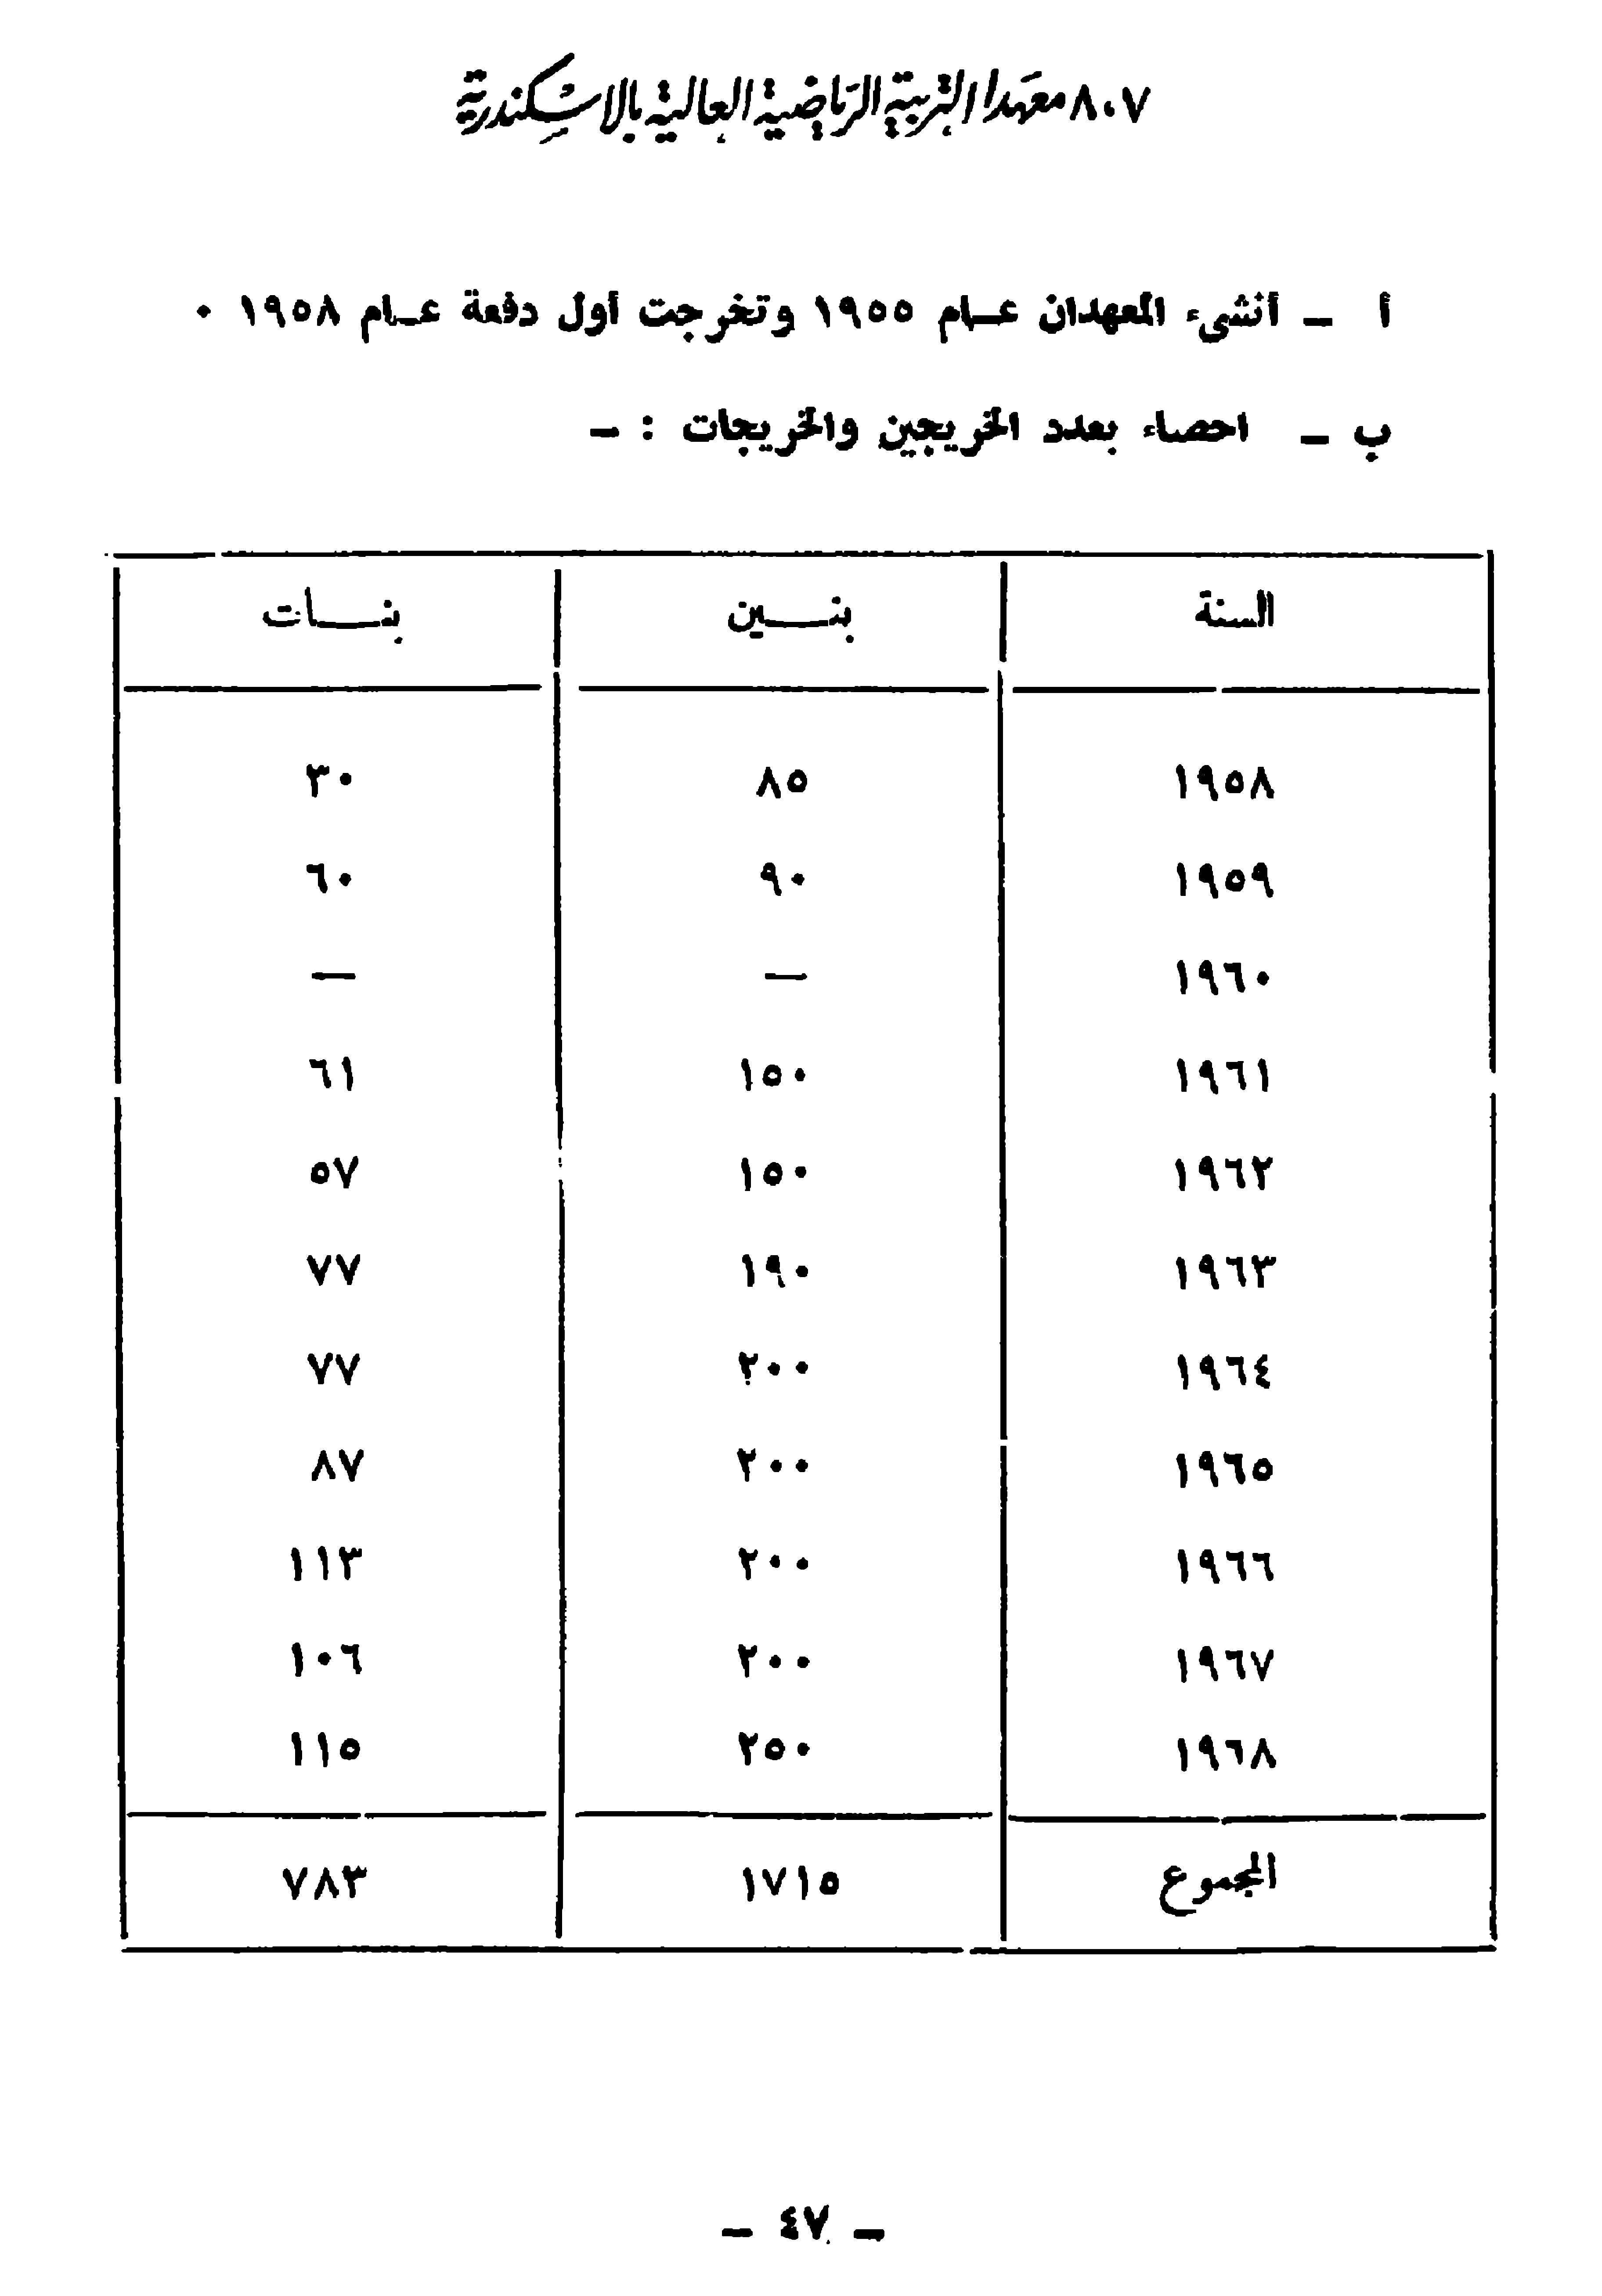 ٨،٧ معهدا التربية الرياضية العالية بالاسكندرية
أ – أنشىء المعهدان عـام ١٩٥٥ وتخرجت أول دفعة عـام ١٩٥٨ ٠
ب – احصاء بعدد الخريجين والخريجات : –
السنة بنـــين بنـــات
١٩٥٨ ٨٥ ٣٠
١٩٥٩ ٩٠ ٦٠
١٩٦٠ — —
١٩٦١ ١٥٠ ٦١
١٩٦٢ ١٥٠ ٥٧
١٩٦٣ ١٩٠ ٧٧
١٩٦٤ ٢٠٠ ٧٧
١٩٦٥ ٢٠٠ ٨٧
١٩٦٦ ٢٠٠ ١١٣
١٩٦٧ ٢٠٠ ١٠٦
١٩٦٨ ٢٥٠ ١١٥
المجموع ١٧١٥ ٧٨٣
– ٤٧ –